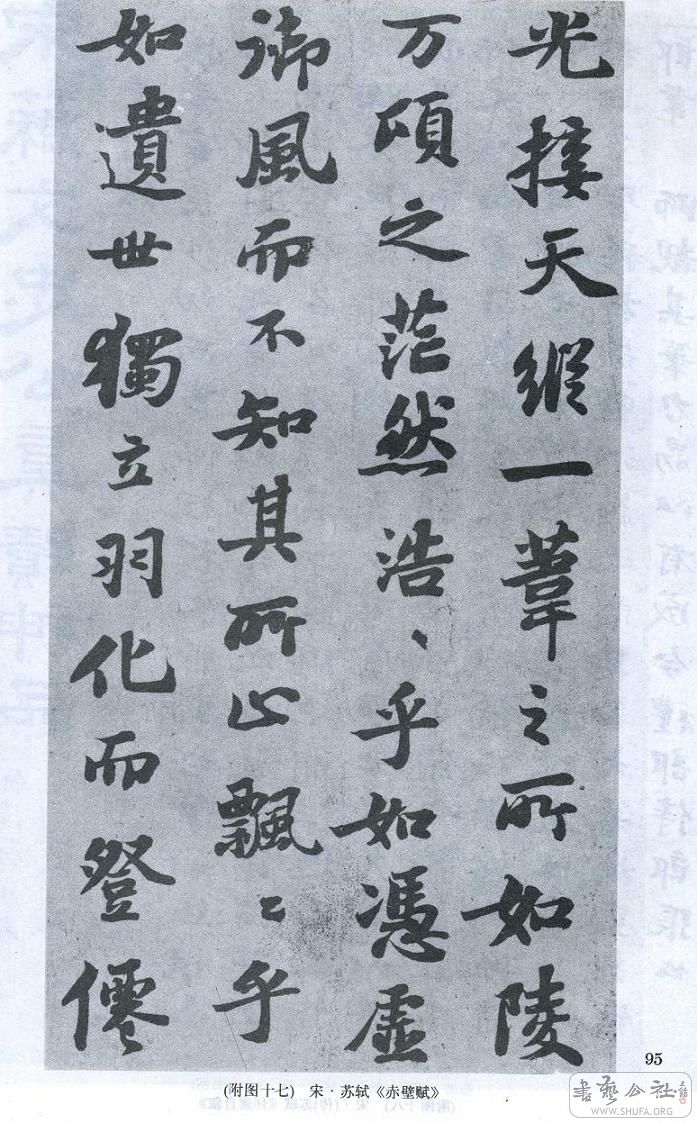 光接天縱一葦之所如陵
万頃之茫然浩、乎如憑虛
御風而不知其所止飄〻乎
如遺世獨立羽化而登僊
95
(附图十七) 宋·苏轼《赤壁赋》
WWW.SHUFA.ORG